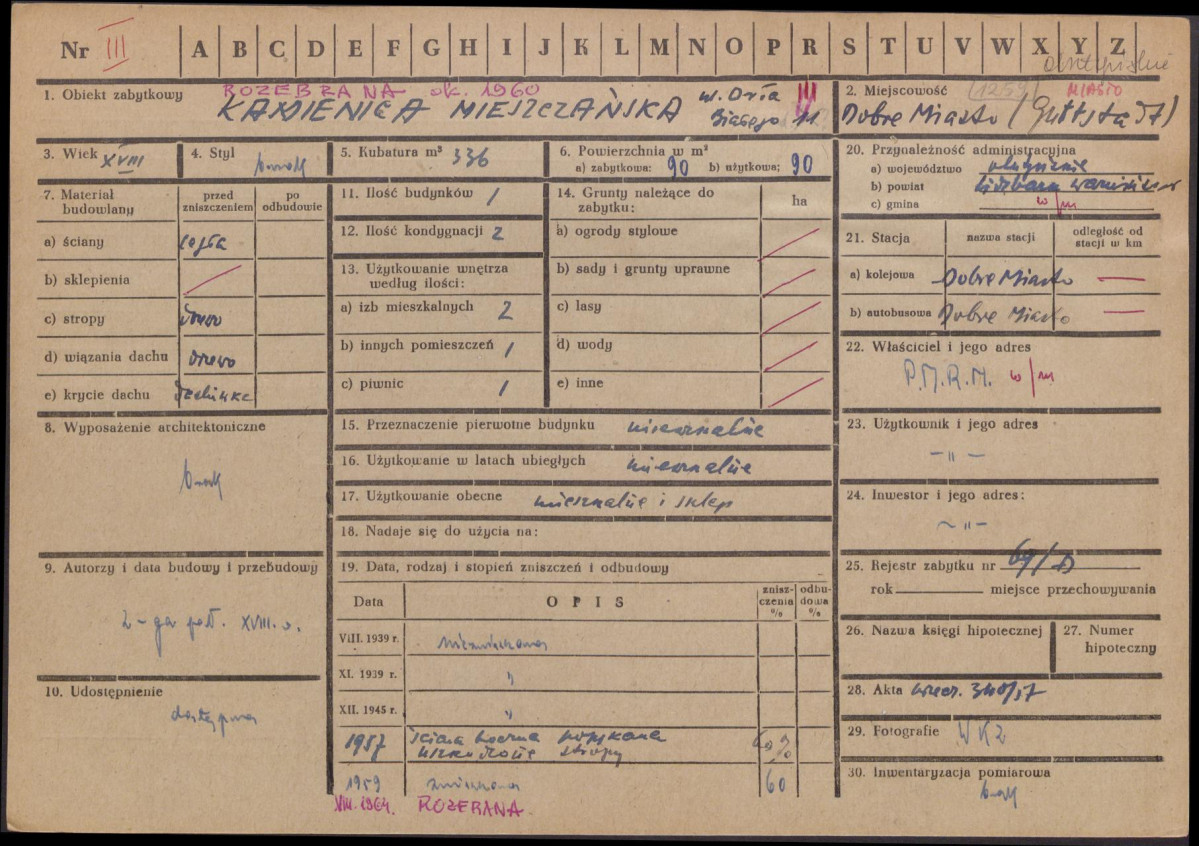 Nr III A B C D E F G H I J K L M N O P R S T U V W X Y Z
1. Obiekt zabytkowy
ROZEBRANA ok. 1960
KAMIENICA MIESZCZAŃSKA
ul. Orła
Białego 11
III
2. Miejscowość
(1259) MIASTO
Dobre Miasto (Guttstadt)
3. Wiek XVIII
4. Styl barok
5. Kubatura m³ 336
6. Powierzchnia w m²
a) zabytkowa: 90 b) użytkowa: 90
7. Materiał budowlany
przed zniszczeniem
po odbudowie
a) ściany cegła
b) sklepienia
c) stropy drewno
d) wiązania dachu drewno
e) krycie dachu dachówka
8. Wyposażenie architektoniczne
brak
9. Autorzy i data budowy i przebudowy
2-ga poł. XVIII. w.
10. Udostępnienie
dostępna
11. Ilość budynków 1
12. Ilość kondygnacji 2
13. Użytkowanie wnętrza
według ilości:
a) izb mieszkalnych 2
b) innych pomieszczeń 1
c) piwnic 1
14. Grunty należące do
zabytku:
ha
a) ogrody stylowe
b) sady i grunty uprawne
c) lasy
d) wody
e) inne
15. Przeznaczenie pierwotne budynku mieszkalne
16. Użytkowanie w latach ubiegłych mieszkalne
17. Użytkowanie obecne mieszkalne i sklep
18. Nadaje się do użycia na:
19. Data, rodzaj i stopień zniszczeń i odbudowy
Data OPIS zniszczenia % odbudowa %
VIII. 1939 r.
XI. 1939 r. "
XII. 1945 r. "
1957 ściana boczna popękana
uszkodzone stropy 60%
1959 zniszczona 60
VIII. 1964. ROZEBRANA
20. Przynależność administracyjna
a) województwo olsztyńskie
b) powiat Lidzbark Warmiński
c) gmina w/m
21. Stacja
nazwa stacji
odległość od stacji w km
a) kolejowa Dobre Miasto —
b) autobusowa Dobre Miasto —
22. Właściciel i jego adres
P.M.R.N. w/m
23. Użytkownik i jego adres
- " -
24. Inwestor i jego adres:
- " -
25. Rejestr zabytku nr
rok miejsce przechowywania
26. Nazwa księgi hipotecznej
27. Numer
hipoteczny
28. Akta
29. Fotografie WKZ
30. Inwentaryzacja pomiarowa
brak